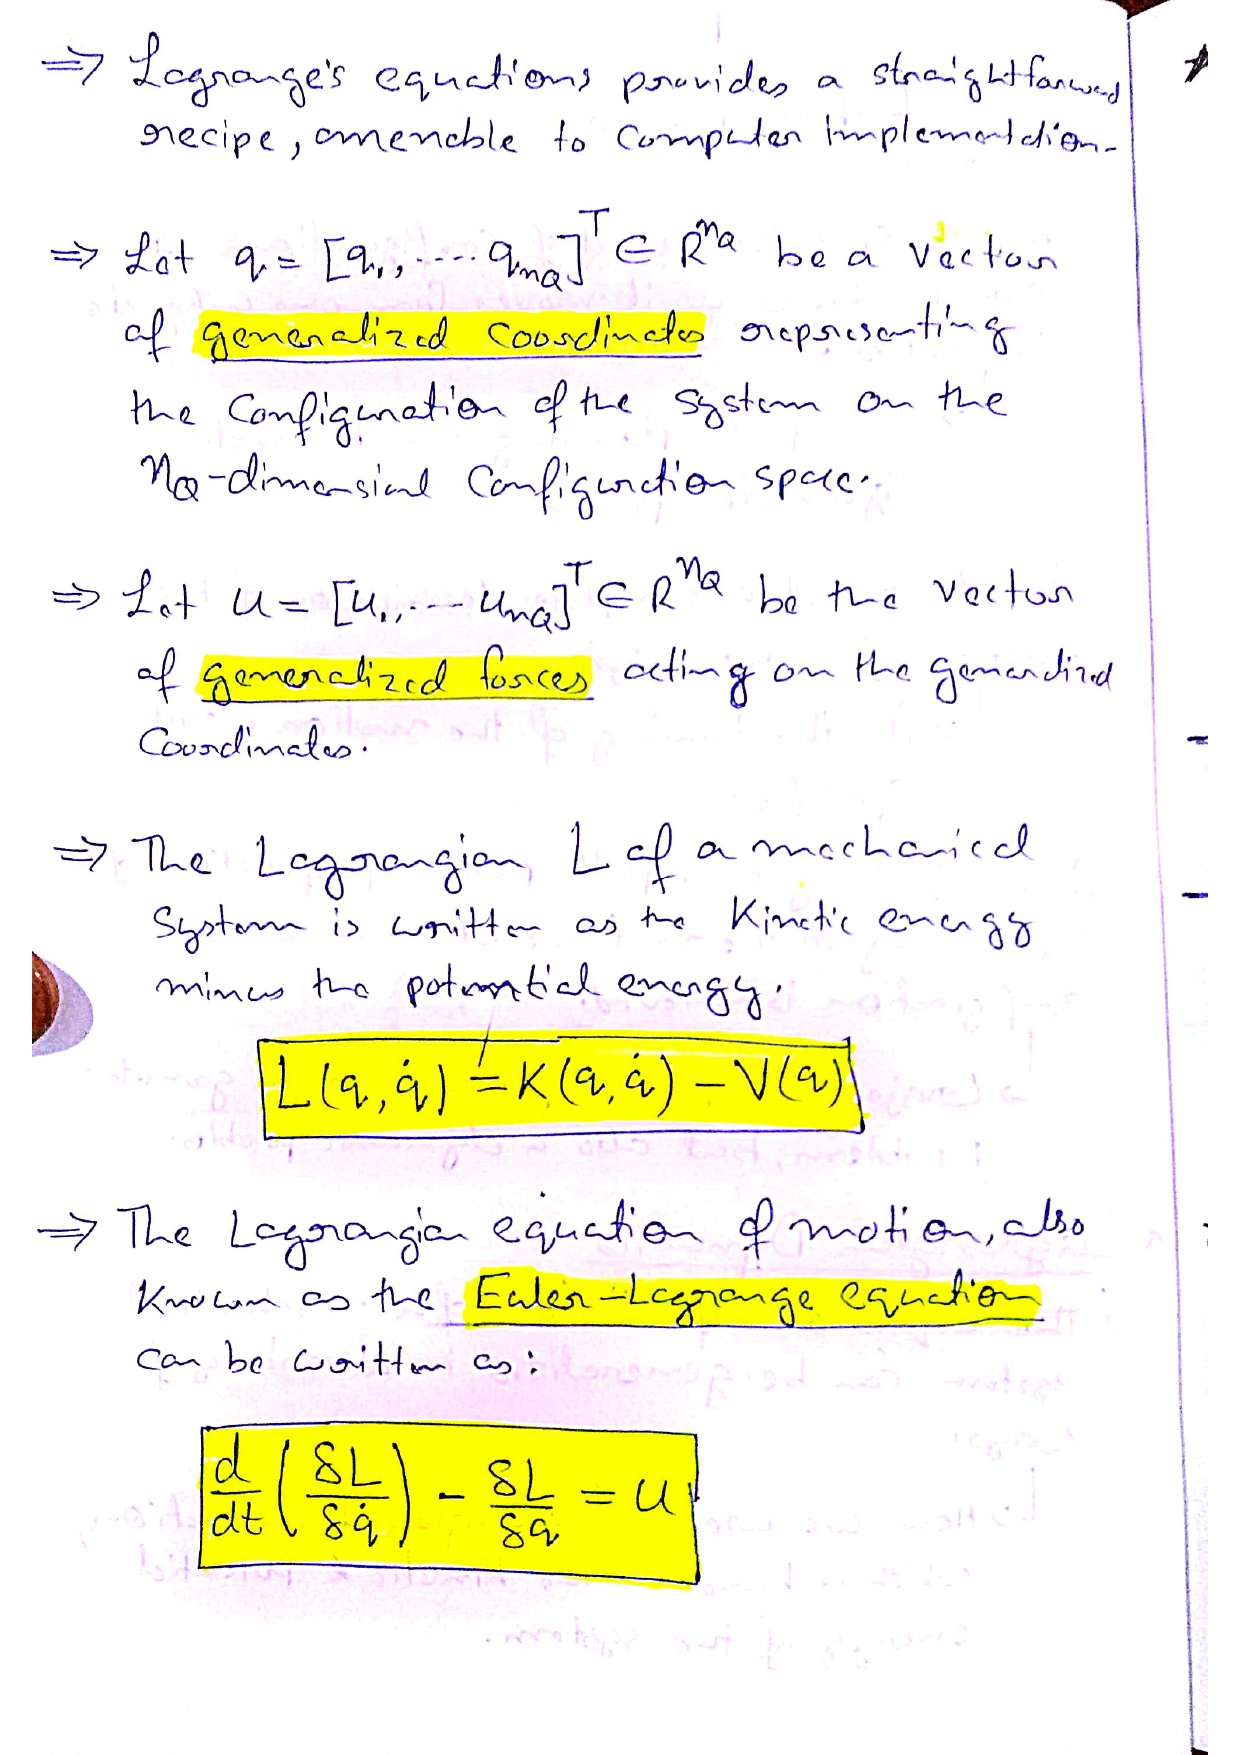 ⇒ Lagrange's equations provides a straightforward
recipe, amenable to Computer Implementation.
⇒ Let q = [q₁, .... q_nQ]ᵀ ∈ R^nQ be a vector
of generalized coordinates representing
the Configuration of the system on the
nQ-dimensional Configuration space.
⇒ Let u = [u₁, ... u_nQ]ᵀ ∈ R^nQ be the vector
of generalized forces acting on the generalized
Coordinates.
⇒ The Lagrangian L of a mechanical
System is written as the Kinetic energy
minus the potential energy.
L(q, q̇) = K(q, q̇) − V(q)
⇒ The Lagrangian equation of motion, also
Known as the Euler-Lagrange equation
can be written as:
d/dt (δL/δq̇) − δL/δq = u